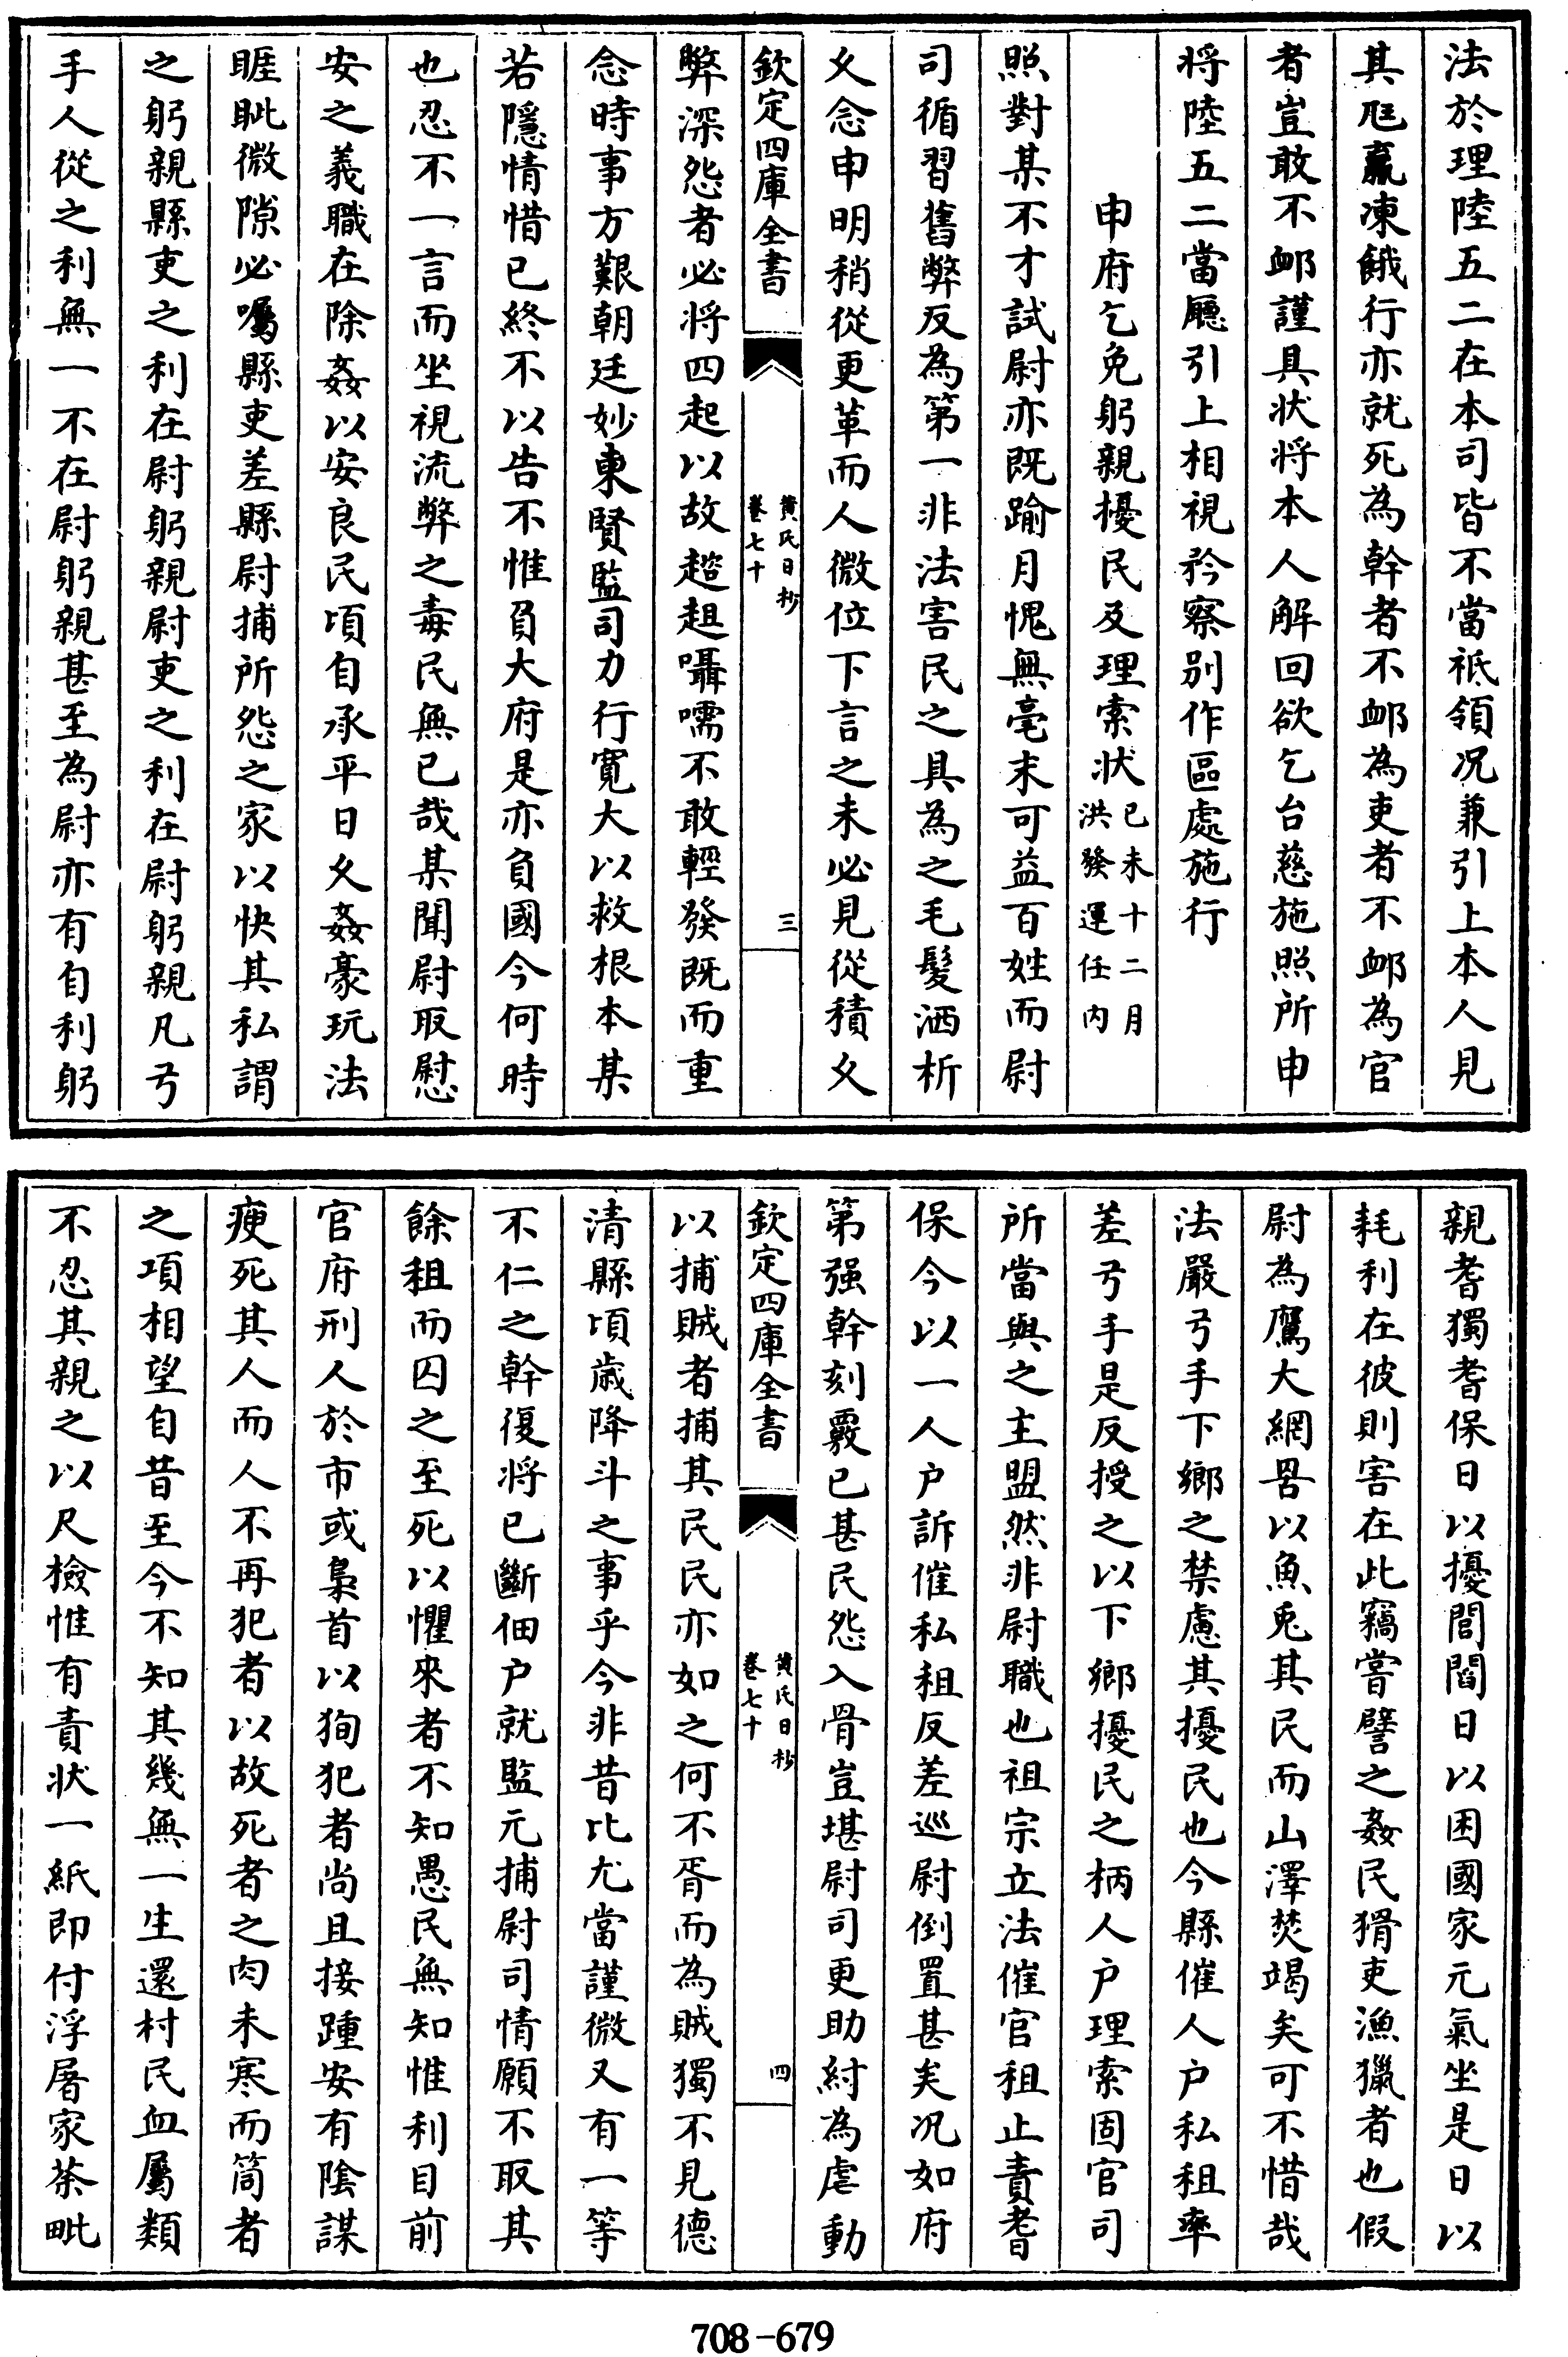 法於理陸五二在本司皆不當祗領况兼引上本人見
其尫羸凍餓行亦就死為幹者不䘏為吏者不䘏為官
者豈敢不䘏謹具状將本人解回欲乞台慈施照所申
將陸五二當廳引上相視矜察别作區處施行
申府乞免躬親擾民及理索状已未十二月
洪發運任内
照對某不才試尉亦既踰月愧無毫末可益百姓而尉
司循習舊弊反為第一非法害民之具為之毛髪洒析
夂念申明稍從更革而人微位下言之未必見從積夂
欽定四庫全書
黄氏日抄
卷七十
三
弊深怨者必將四起以故趦趄囁嚅不敢輕發既而重
念時事方艱朝廷妙柬賢監司力行寛大以救根本某
若隱情惜已終不以告不惟負大府是亦負國今何時
也忍不一言而坐視流弊之毒民無已哉某聞尉取慰
安之義職在除姦以安良民頃自承平日夂姦豪玩法
睚眦微隙必囑縣吏差縣尉捕所怨之家以快其私謂
之躬親縣吏之利在尉躬親尉吏之利在尉躬親凡弓
手人從之利無一不在尉躬親甚至為尉亦有自利躬
親耆獨耆保日以擾閭閻日以困國家元氣坐是日以
耗利在彼則害在此竊嘗譬之姦民猾吏漁獵者也假
尉為鷹犬網罟以魚兎其民而山澤焚竭矣可不惜哉
法嚴弓手下鄉之禁慮其擾民也今縣催人户私租率
差弓手是反授之以下鄉擾民之柄人户理索固官司
所當與之主盟然非尉職也祖宗立法催官租止責耆
保今以一人户訴催私租反差巡尉倒置甚矣况如府
第强幹刻覈已甚民怨入骨豈堪尉司更助紂為虐動
欽定四庫全書
黄氏日抄
卷七十
四
以捕賊者捕其民民亦如之何不胥而為賊獨不見德
清縣頃歲降斗之事乎今非昔比尤當謹微又有一等
不仁之幹復將已斷佃户就監元捕尉司情願不取其
餘租而囚之至死以懼來者不知愚民無知惟利目前
官府刑人於市或梟首以狥犯者尚且接踵安有陰謀
瘐死其人而人不再犯者以故死者之肉未寒而筒者
之項相望自昔至今不知其幾無一生還村民血屬類
不忍其親之以尺檢惟有責状一紙即付浮屠家荼毗
708-679